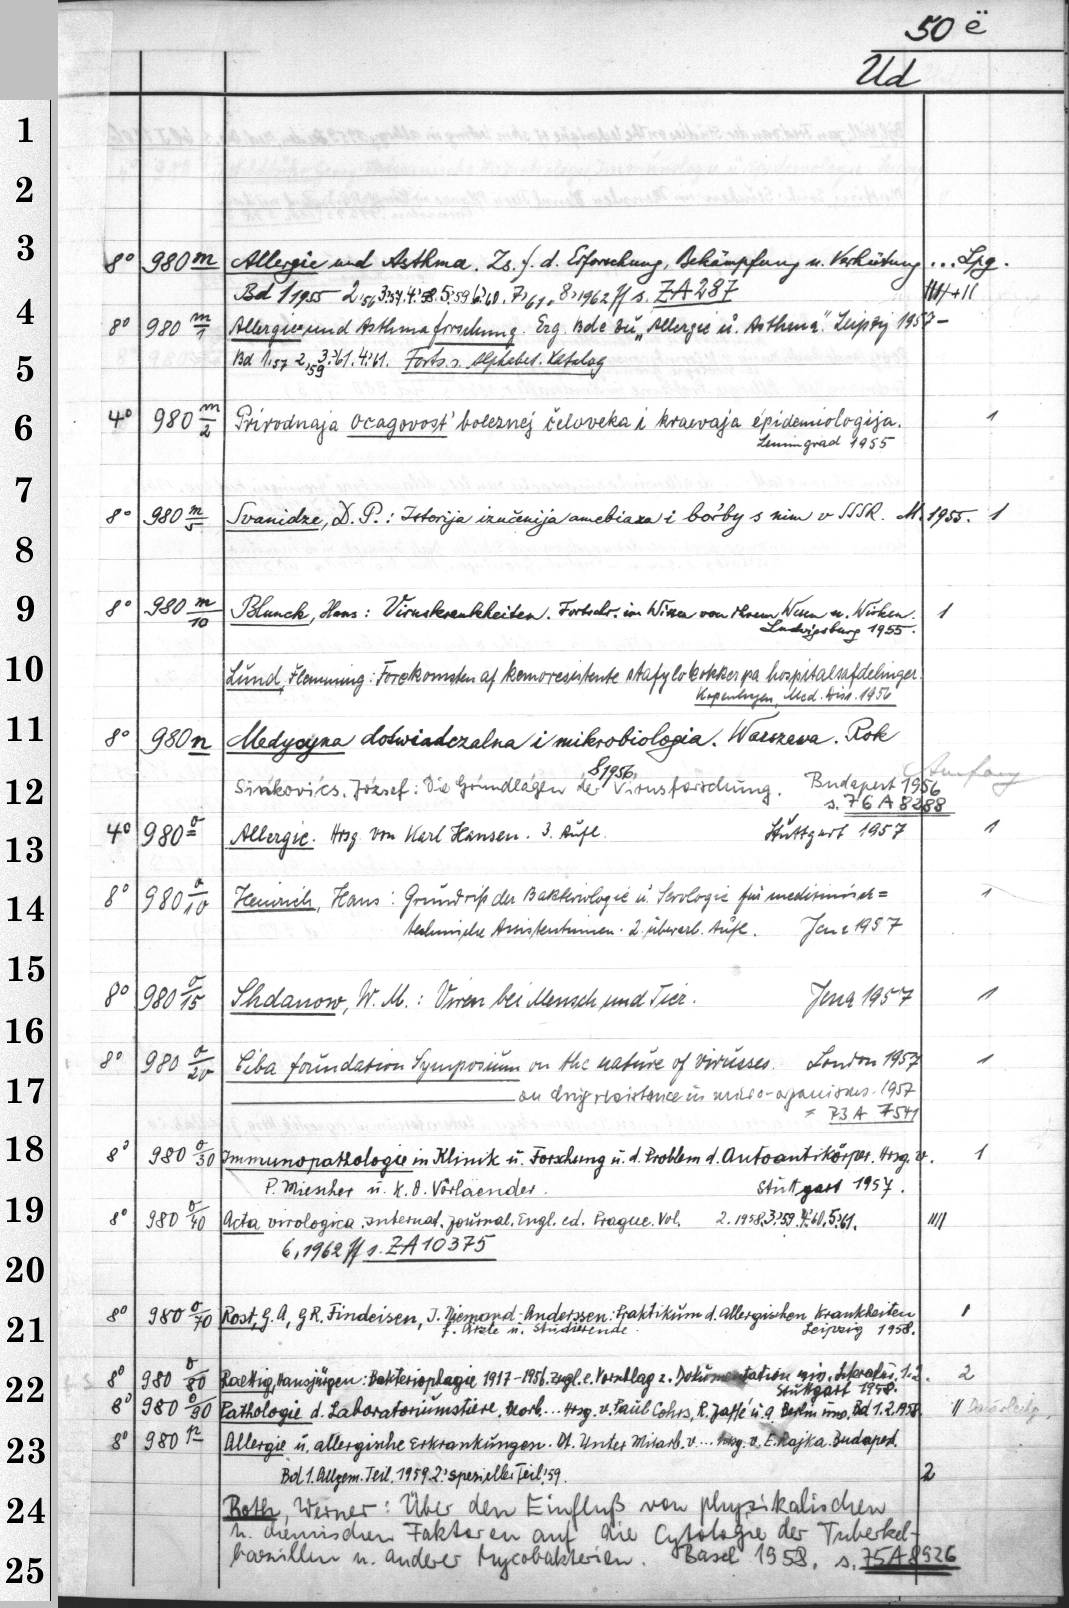 50 ë
Ud
1
2
3
8° 980 m Allergie und Asthma. Zs. f. d. Erforschung, Bekämpfung u. Verhütung ... Lpg.
Bd 1 1955 2,56 3,57 4,58 5,59 6,60 7,61, 8,1962 ff s. ZA 287
4
8° 980 m/1 Allergie und Asthmaforschung. Erg. Bde zu „Allergie u. Asthma". Leipzig 1957-
5
Bd 1,57 2,59 3,61. 4,61. Forts. s. Alphabet. Katalog
6
4° 980 m/2 Prirodnaja ocagovost' boleznej čeloveka i kraevaja épidemiologija. 1
Leningrad 1955
7
8° 980 m/5 Svanidze, D. P.: Istorija izučenija amebiaza i bor'by s nim v SSSR. M. 1955. 1
8
9
8° 980 m/10 Blunck, Hans: Viruskrankheiten. Fortschr. im Wissen von ihrem Wesen u. Wirken. 1
Ludwigsburg 1955.
10
Lund, Flemming: Forekomsten af kemoresistente stafylokokker pa hospitalsafdelinger.
Kopenhagen, Med. Diss. 1956
11
8° 980 n Medycyna doświadczalna i mikrobiologia. Warszawa. Rok
8 1956, Anfang
12
Sinkovics, József: Die Grundlagen der Virusforschung. Budapest 1956
s. 76 A 8288
13
4° 980 o Allergie. Hrsg. von Karl Hansen. 3. Aufl. Stuttgart 1957 1
14
8° 980 o/10 Heinrich, Hans: Grundriß der Bakteriologie u. Serologie für medizinisch= 1
technische Assistentinnen. 2. überarb. Aufl. Jena 1957
15
8° 980 o/15 Shdanow, W. M.: Viren bei Mensch und Tier. Jena 1957 1
16
8° 980 o/20 Ciba foundation Symposium on the nature of viruses. London 1957 1
17
on drug resistance in micro-organisms. 1957
= 73 A 7541
18
8° 980 o/30 Immunopathologie in Klinik u. Forschung u. d. Problem d. Autoantikörper. Hrsg. v. 1
P. Miescher u. K. O. Vorlaender. Stuttgart 1957.
19
8° 980 o/40 Acta virologica. Internat. journal. Engl. ed. Prague. Vol. 2. 1958. 3,59. 4,60. 5,61. ////
6, 1962 ff s. ZA 10375
20
21
8° 980 o/70 Rost, G. A, G R. Findeisen, I. Niemand-Anderssen: Praktikum d. allergischen Krankheiten 1
f. Ärzte u. Studierende. Leipzig 1958.
22
8° 980 o/80 Raettig, Hansjürgen: Bakteriophagie 1917-1956. zugl. e. Vorschlag z. Dokumentation wiss. Literatur. 1.2. 2
Stuttgart 1958.
8° 980 o/90 Pathologie d. Laboratoriumstiere. Bearb. ... Hrsg. v. Paul Cohrs, R. Jaffé u. a. Berlin usw. Bd 1.2. 1958 //
23
8° 980 p Allergie u. allergische Erkrankungen. Dt. Unter Mitarb. v ... hrsg. v. E. Rajka. Budapest.
Bd 1. Allgem. Teil. 1959 2. spezieller Teil, 59. 2
24
Roth, Werner: Über den Einfluß von physikalischen
u. chemischen Faktoren auf die Cytologie der Tuberkel-
25
bazillen u. anderer Mycobakterien. Basel 1958. s. 75 A 8926